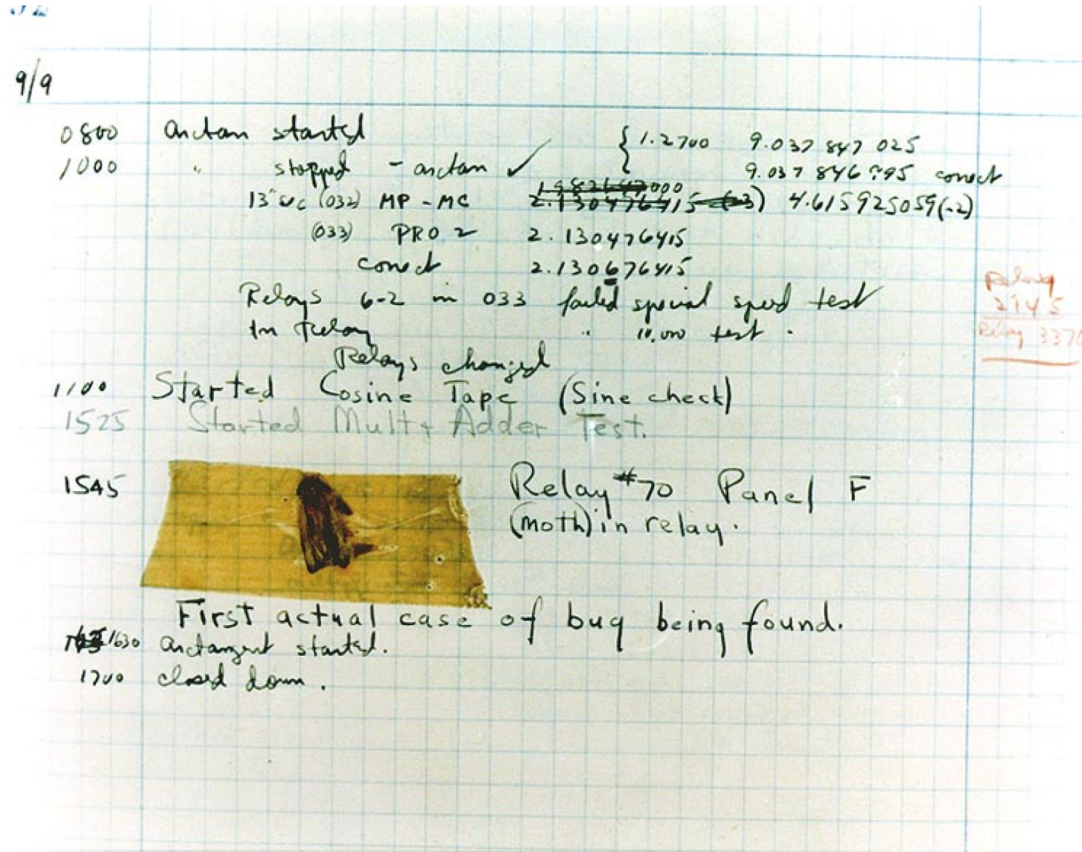 9/9
0800 arctan started { 1.2700 9.037 847 025
1000 " stopped - arctan ✓ 9.037 846 995 correct
13" sec (032) MP - MC 2.130476415 (-3) 4.615925059 (-2)
(033) PRO 2 2.130476415
correct 2.130676415
Relays 6-2 in 033 failed special speed test
In Relay " 10,000 test .
Relays changed
Relay
2145
Relay 3370
1100 Started Cosine Tape (Sine check)
1525 Started Mult + Adder Test.
1545 Relay #70 Panel F
(moth) in relay.
First actual case of bug being found.
1630 arctangent started.
1700 closed down .